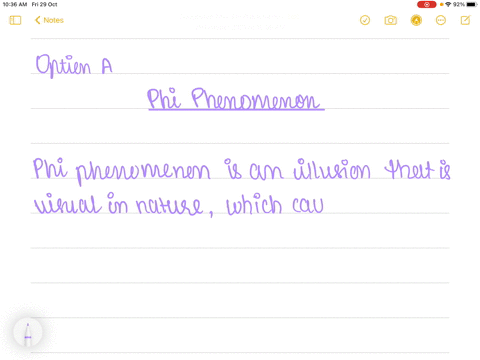 10:36 AM Fri 29 Oct 92%
Notes
Option A
Phi Phenomenon
Phi phenomenon is an illusion that is
visual in nature, which cau